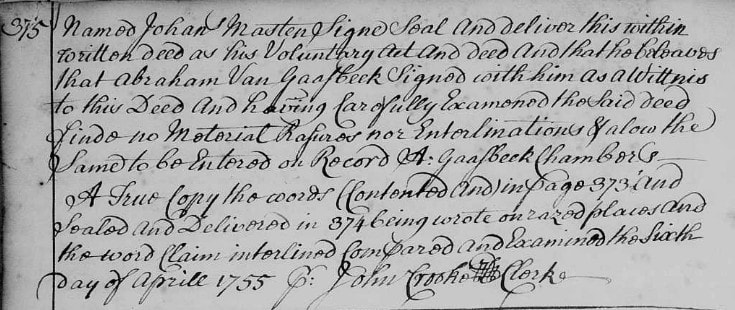 375 Named Johans Masten Signe Seal And deliver this within
written deed as his Voluntary Act And deed And that he beleaves
that Abraham Van Gaasbeek Signed with him as a Wittnis
to this Deed And having Carefully Examened the Said deed
finde no Meterial Rasures nor Enterlinations & alow the
Same to be Entered on Record A: Gaasbeek Chambers
A True Copy the words (Contented And) in page 373 And
Sealed And Delivered in 374 being wrote on razed places And
the word Claim interlined Compared And Examined the Sixth
day of Aprill 1755 pr: John Crooke Clerk